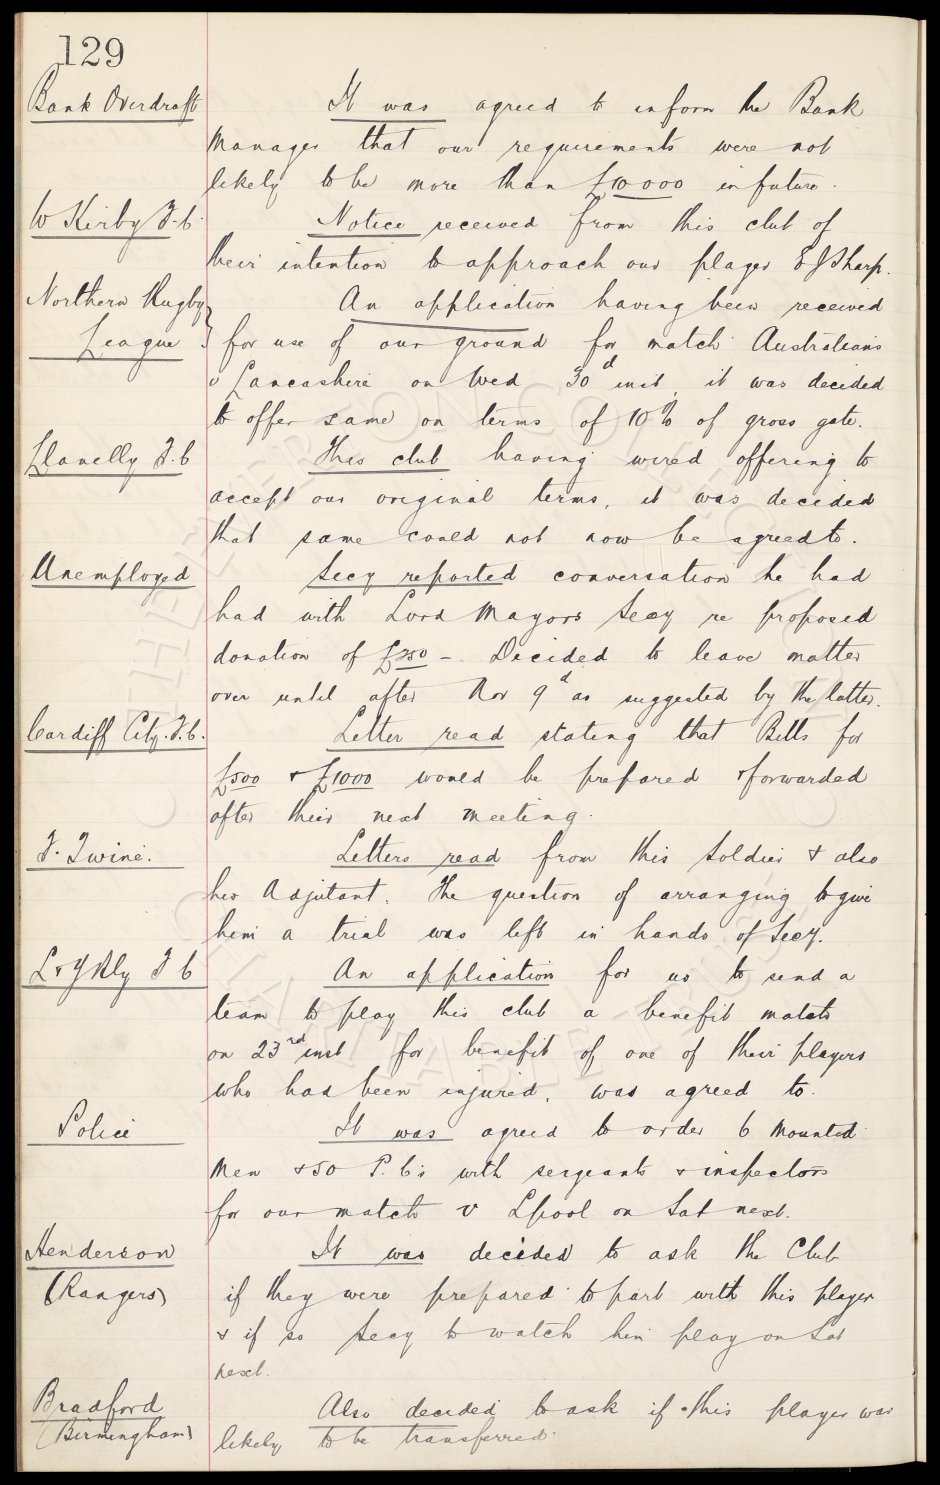 129
Bank Overdraft
It was agreed to inform the Bank
Manager that our requirements were not
likely to be more than £10000 in future.
W Kirby F.C.
Notice received from this club of
their intention to approach our player E J Sharp.
Northern Rugby
League }
An application having been received
for use of our ground for match Australians
v Lancashire on Wed 30d inst, it was decided
to offer same on terms of 10% of gross gate.
Llanelly F.C
This club having wired offering to
accept our original terms, it was decided
that same could not now be agreed to.
Unemployed
Secy reported conversation he had
had with Lord Mayors Secy re proposed
donation of £250 - Decided to leave matter
over until after Nov 9d as suggested by the latter.
Cardiff City. F.C.
Letter read stating that Bills for
£500 & £1000 would be prepared & forwarded
after their next meeting.
F. Twine.
Letters read from this Soldier & also
his Adjutant. The question of arranging to give
him a trial was left in hands of Secy.
L & Y Rly F C
An application for us to send a
team to play this club a benefit match
on 23rd inst for benefit of one of their players
who had been injured, was agreed to.
Police
It was agreed to order 6 Mounted
Men & 50 P.C's with sergeants & inspectors
for our match v Lpool on Sat next.
Henderson
(Rangers)
It was decided to ask the Club
if they were prepared to part with this player
& if so Secy to watch him play on Sat
next.
Bradford
(Birmingham)
Also decided to ask if this player was
likely to be transferred.
THE EVERTON COLLECTION
CHARITABLE TRUST